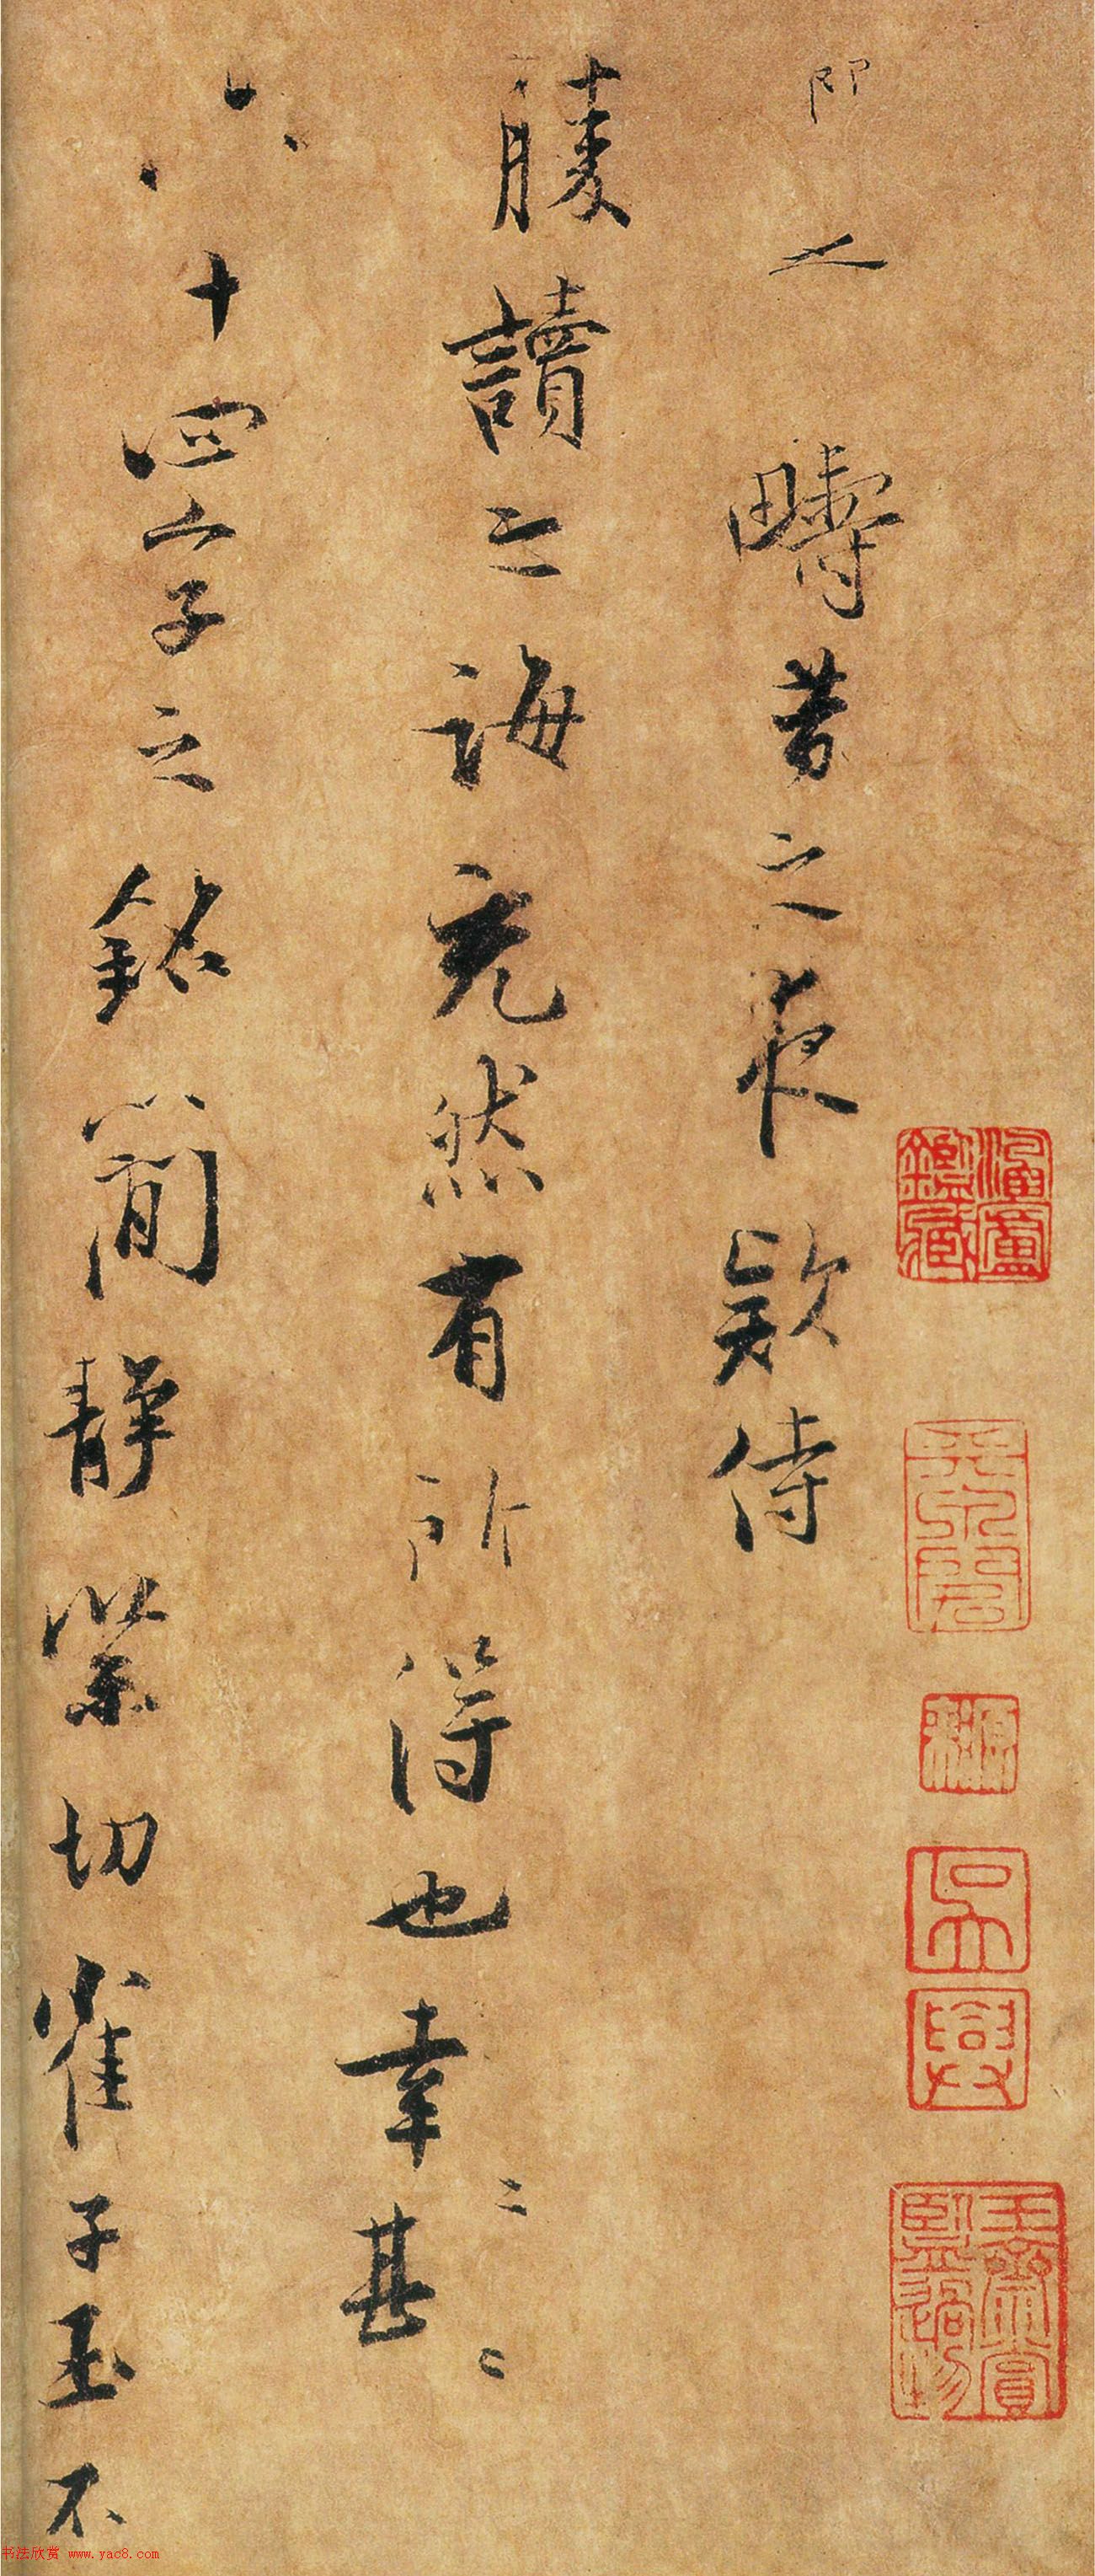 即之 疇昔之夜款侍
勝讀之誨充然有所得也幸〻甚〻
六十四字之銘簡靜緊切崔子玉不
吳
興
书法欣赏 www.yac8.com